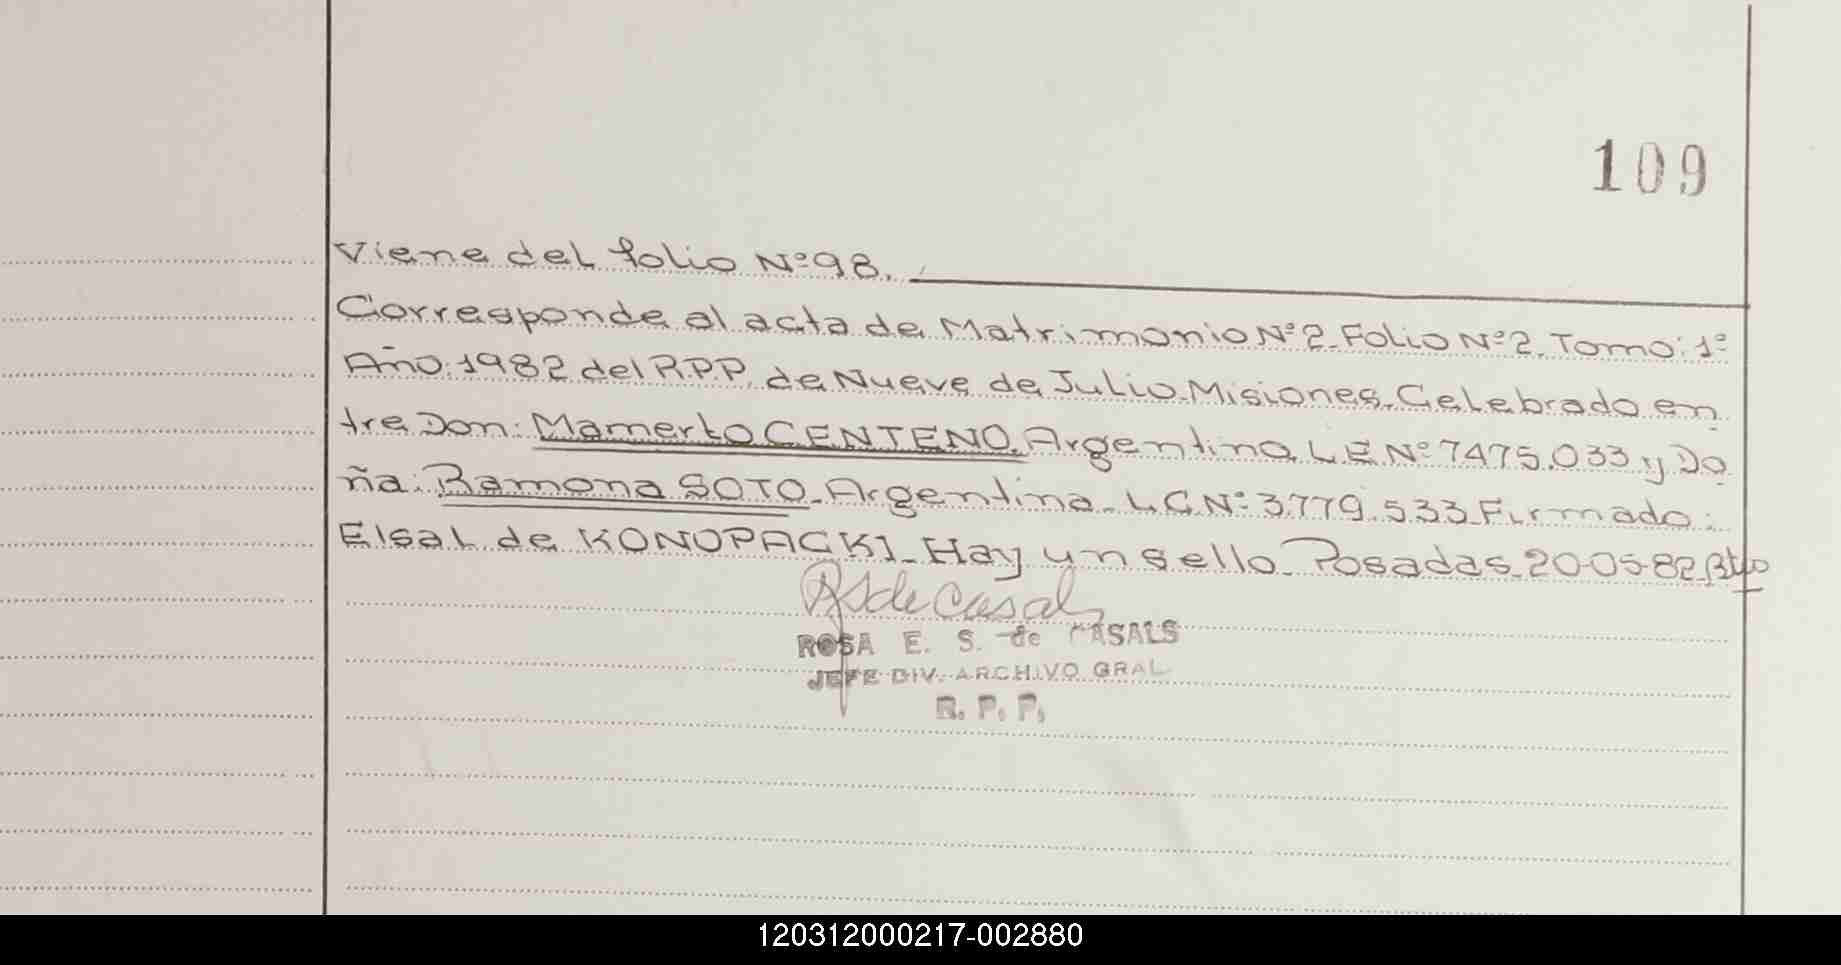 109
Viene del folio Nº98.
Corresponde al acta de Matrimonio Nº2. Folio Nº2. Tomo: 1º
Año: 1982 del R.P.P. de Nueve de Julio. Misiones. Celebrado en
tre Don: Mamerto CENTENO. Argentino. L.E.Nº 7475.033 y Do
ña: Ramona SOTO. Argentina. L.C.Nº 3.779.533 Firmado:
Elsa L. de KONOPACKI. Hay un sello. Posadas. 20-05-82
RSdeCasals
ROSA E. S. de CASALS
JEFE DIV. ARCHIVO GRAL
R. P. P.
120312000217-002880